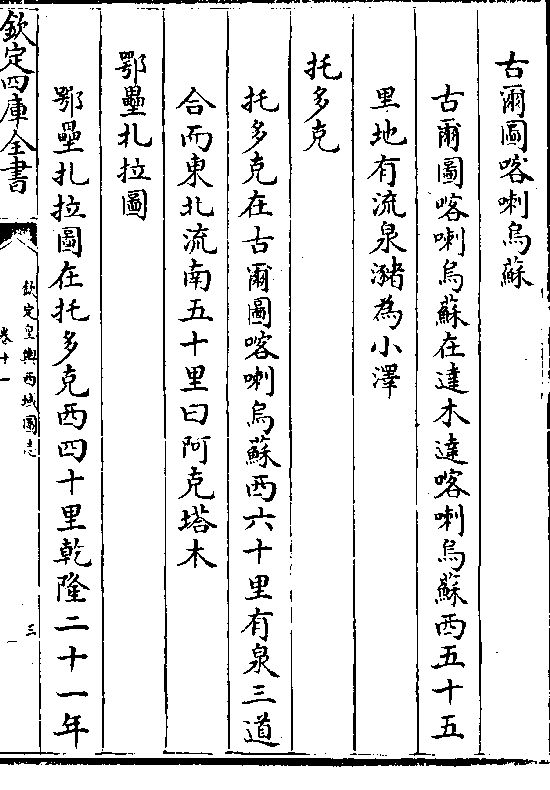 古爾圖喀喇烏蘇
古爾圖喀喇烏蘇在達木達喀喇烏蘇西五十五
里地有流泉瀦為小澤
托多克
托多克在古爾圖喀喇烏蘇西六十里有泉三道
合而東北流南五十里曰阿克塔木
鄂壘扎拉圖
鄂壘扎拉圖在托多克西四十里乾隆二十一年
欽定四庫全書
欽定皇輿西域圖志
卷十一
三